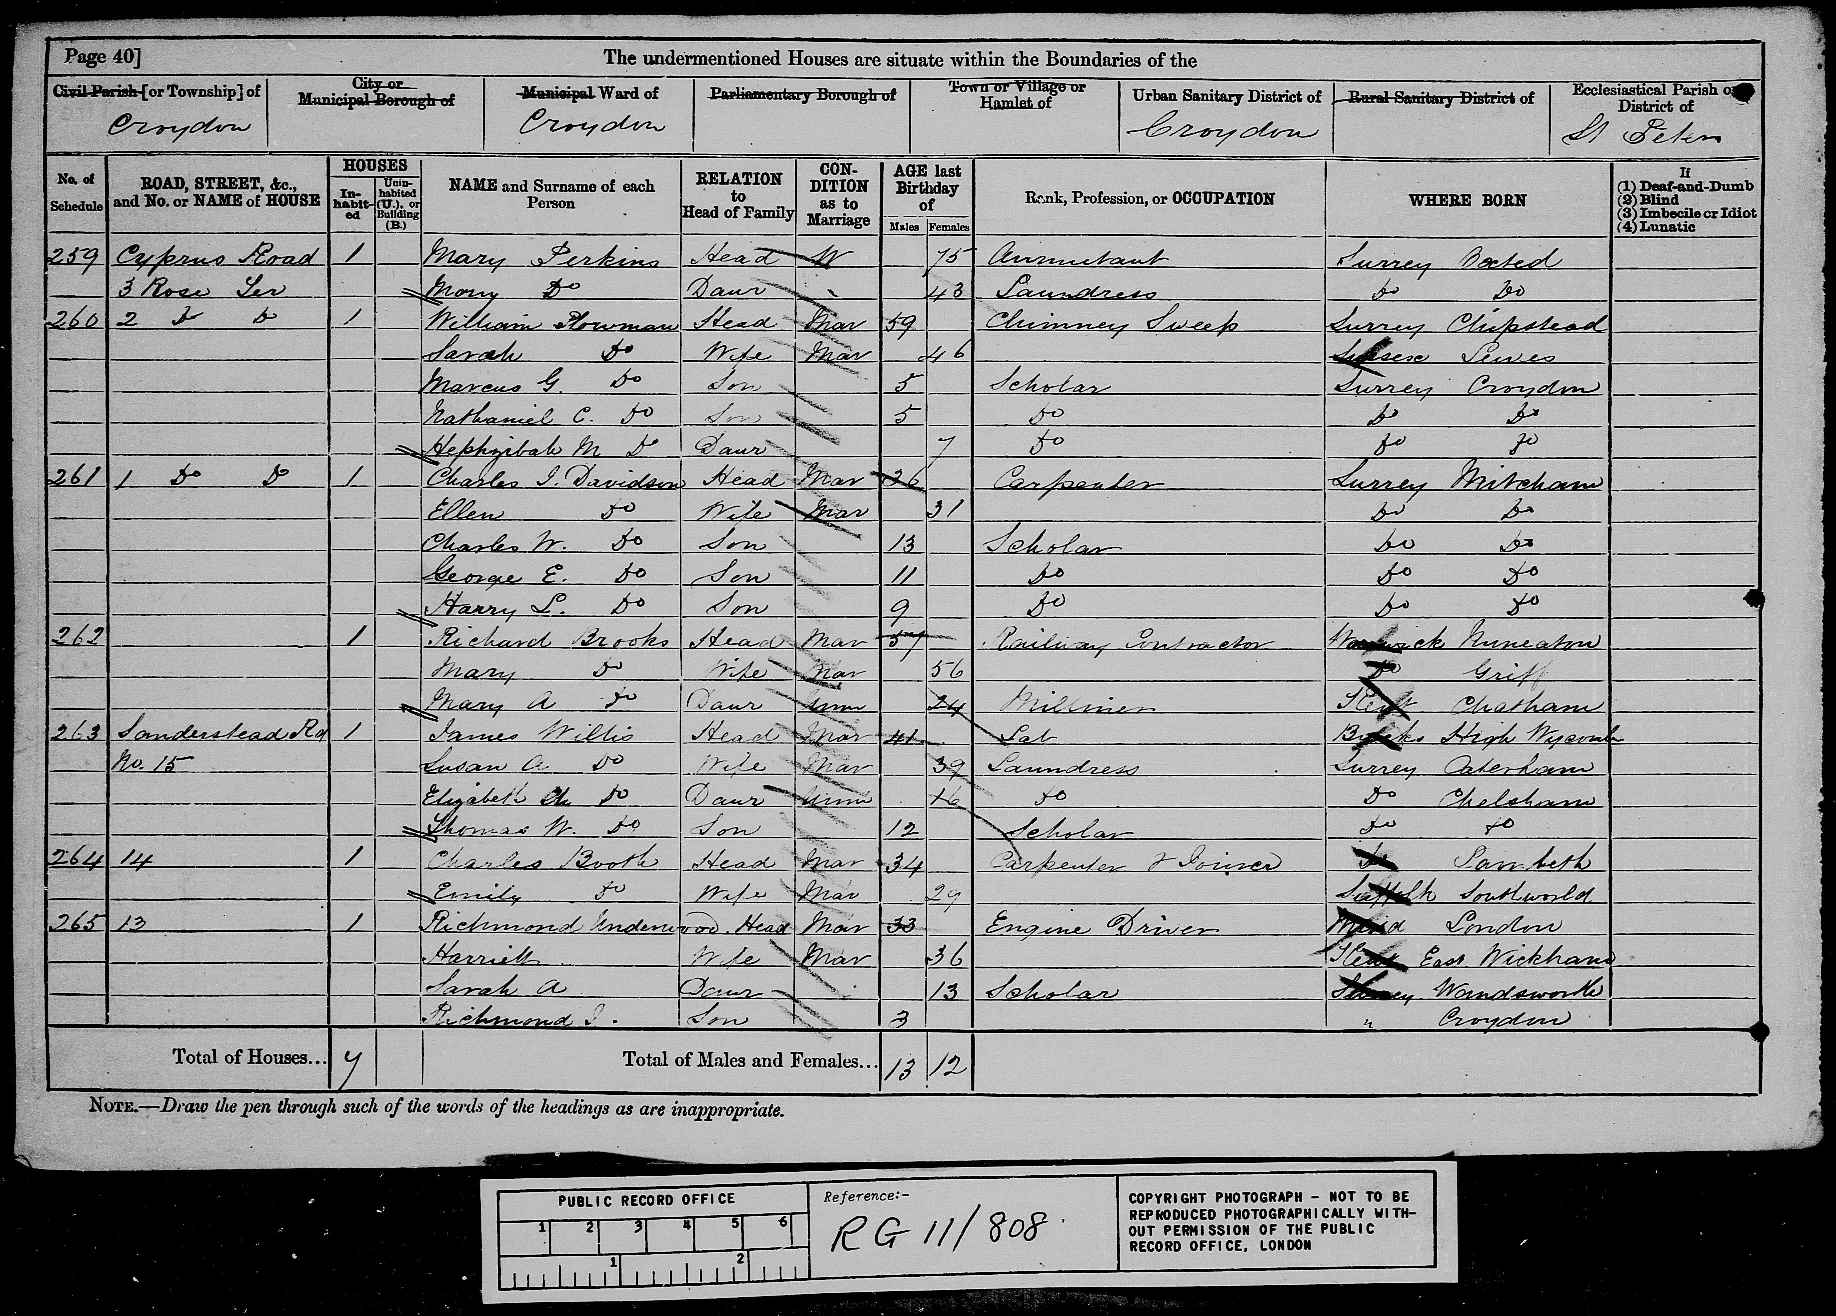 Page 40] The undermentioned Houses are situate within the Boundaries of the
Civil Parish [or Township] of City or Municipal Borough of Municipal Ward of Parliamentary Borough of Town or Village or Hamlet of Urban Sanitary District of Rural Sanitary District of Ecclesiastical Parish or District of
Croydon Croydon Croydon St Peters
No. of Schedule ROAD, STREET, &c., and No. or NAME of HOUSE HOUSES Inhabited Uninhabited (U.), or Building (B.) NAME and Surname of each Person RELATION to Head of Family CONDITION as to Marriage AGE last Birthday of Males Females Rank, Profession, or OCCUPATION WHERE BORN If (1) Deaf-and-Dumb (2) Blind (3) Imbecile or Idiot (4) Lunatic
259 Cyprus Road 1 Mary Perkins Head W 75 Annuitant Surrey Oxted
3 Rose Ter Mary Do Daur 43 Laundress Do Do
260 2 Do Do 1 William Plowman Head Mar 59 Chimney Sweep Surrey Chipstead
Sarah Do Wife Mar 46 Sussex Lewes
Marcus G. Do Son 5 Scholar Surrey Croydon
Nathaniel C. Do Son 5 Do Do Do
Hephzibah M Do Daur 7 Do Do Do
261 1 Do Do 1 Charles J. Davidson Head Mar 36 Carpenter Surrey Mitcham
Ellen Do Wife Mar 31 Do Do
Charles W. Do Son 13 Scholar Do Do
George E. Do Son 11 Do Do Do
Harry L. Do Son 9 Do Do Do
262 1 Richard Brooks Head Mar 57 Railway Contractor Warwick Nuneaton
Mary Do Wife Mar 56 Do Griff
Mary A Do Daur Unm 24 Milliner Kent Chatham
263 Sanderstead Rd 1 James Willis Head Mar 41 Lab Bucks High Wycombe
No. 15 Susan A Do Wife Mar 39 Laundress Surrey Caterham
Elizabeth Do Daur Unm 16 Do Do Chelsham
Thomas W. Do Son 12 Scholar Do Do
264 14 1 Charles Booth Head Mar 34 Carpenter & Joiner Do Lambeth
Emily Do Wife Mar 29 Suffolk Southwold
265 13 1 Richmond Underwood Head Mar 33 Engine Driver Midd London
Harriett Wife Mar 36 Kent East Wickham
Sarah A Daur 13 Scholar Surrey Wandsworth
Richmond J. Son 3 " Croydon
Total of Houses... 7 Total of Males and Females... 13 12
NOTE.—Draw the pen through such of the words of the headings as are inappropriate.
PUBLIC RECORD OFFICE
1 2 3 4 5 6
1 2
Reference:-
RG 11/808
COPYRIGHT PHOTOGRAPH - NOT TO BE
REPRODUCED PHOTOGRAPHICALLY WITH-
OUT PERMISSION OF THE PUBLIC
RECORD OFFICE, LONDON